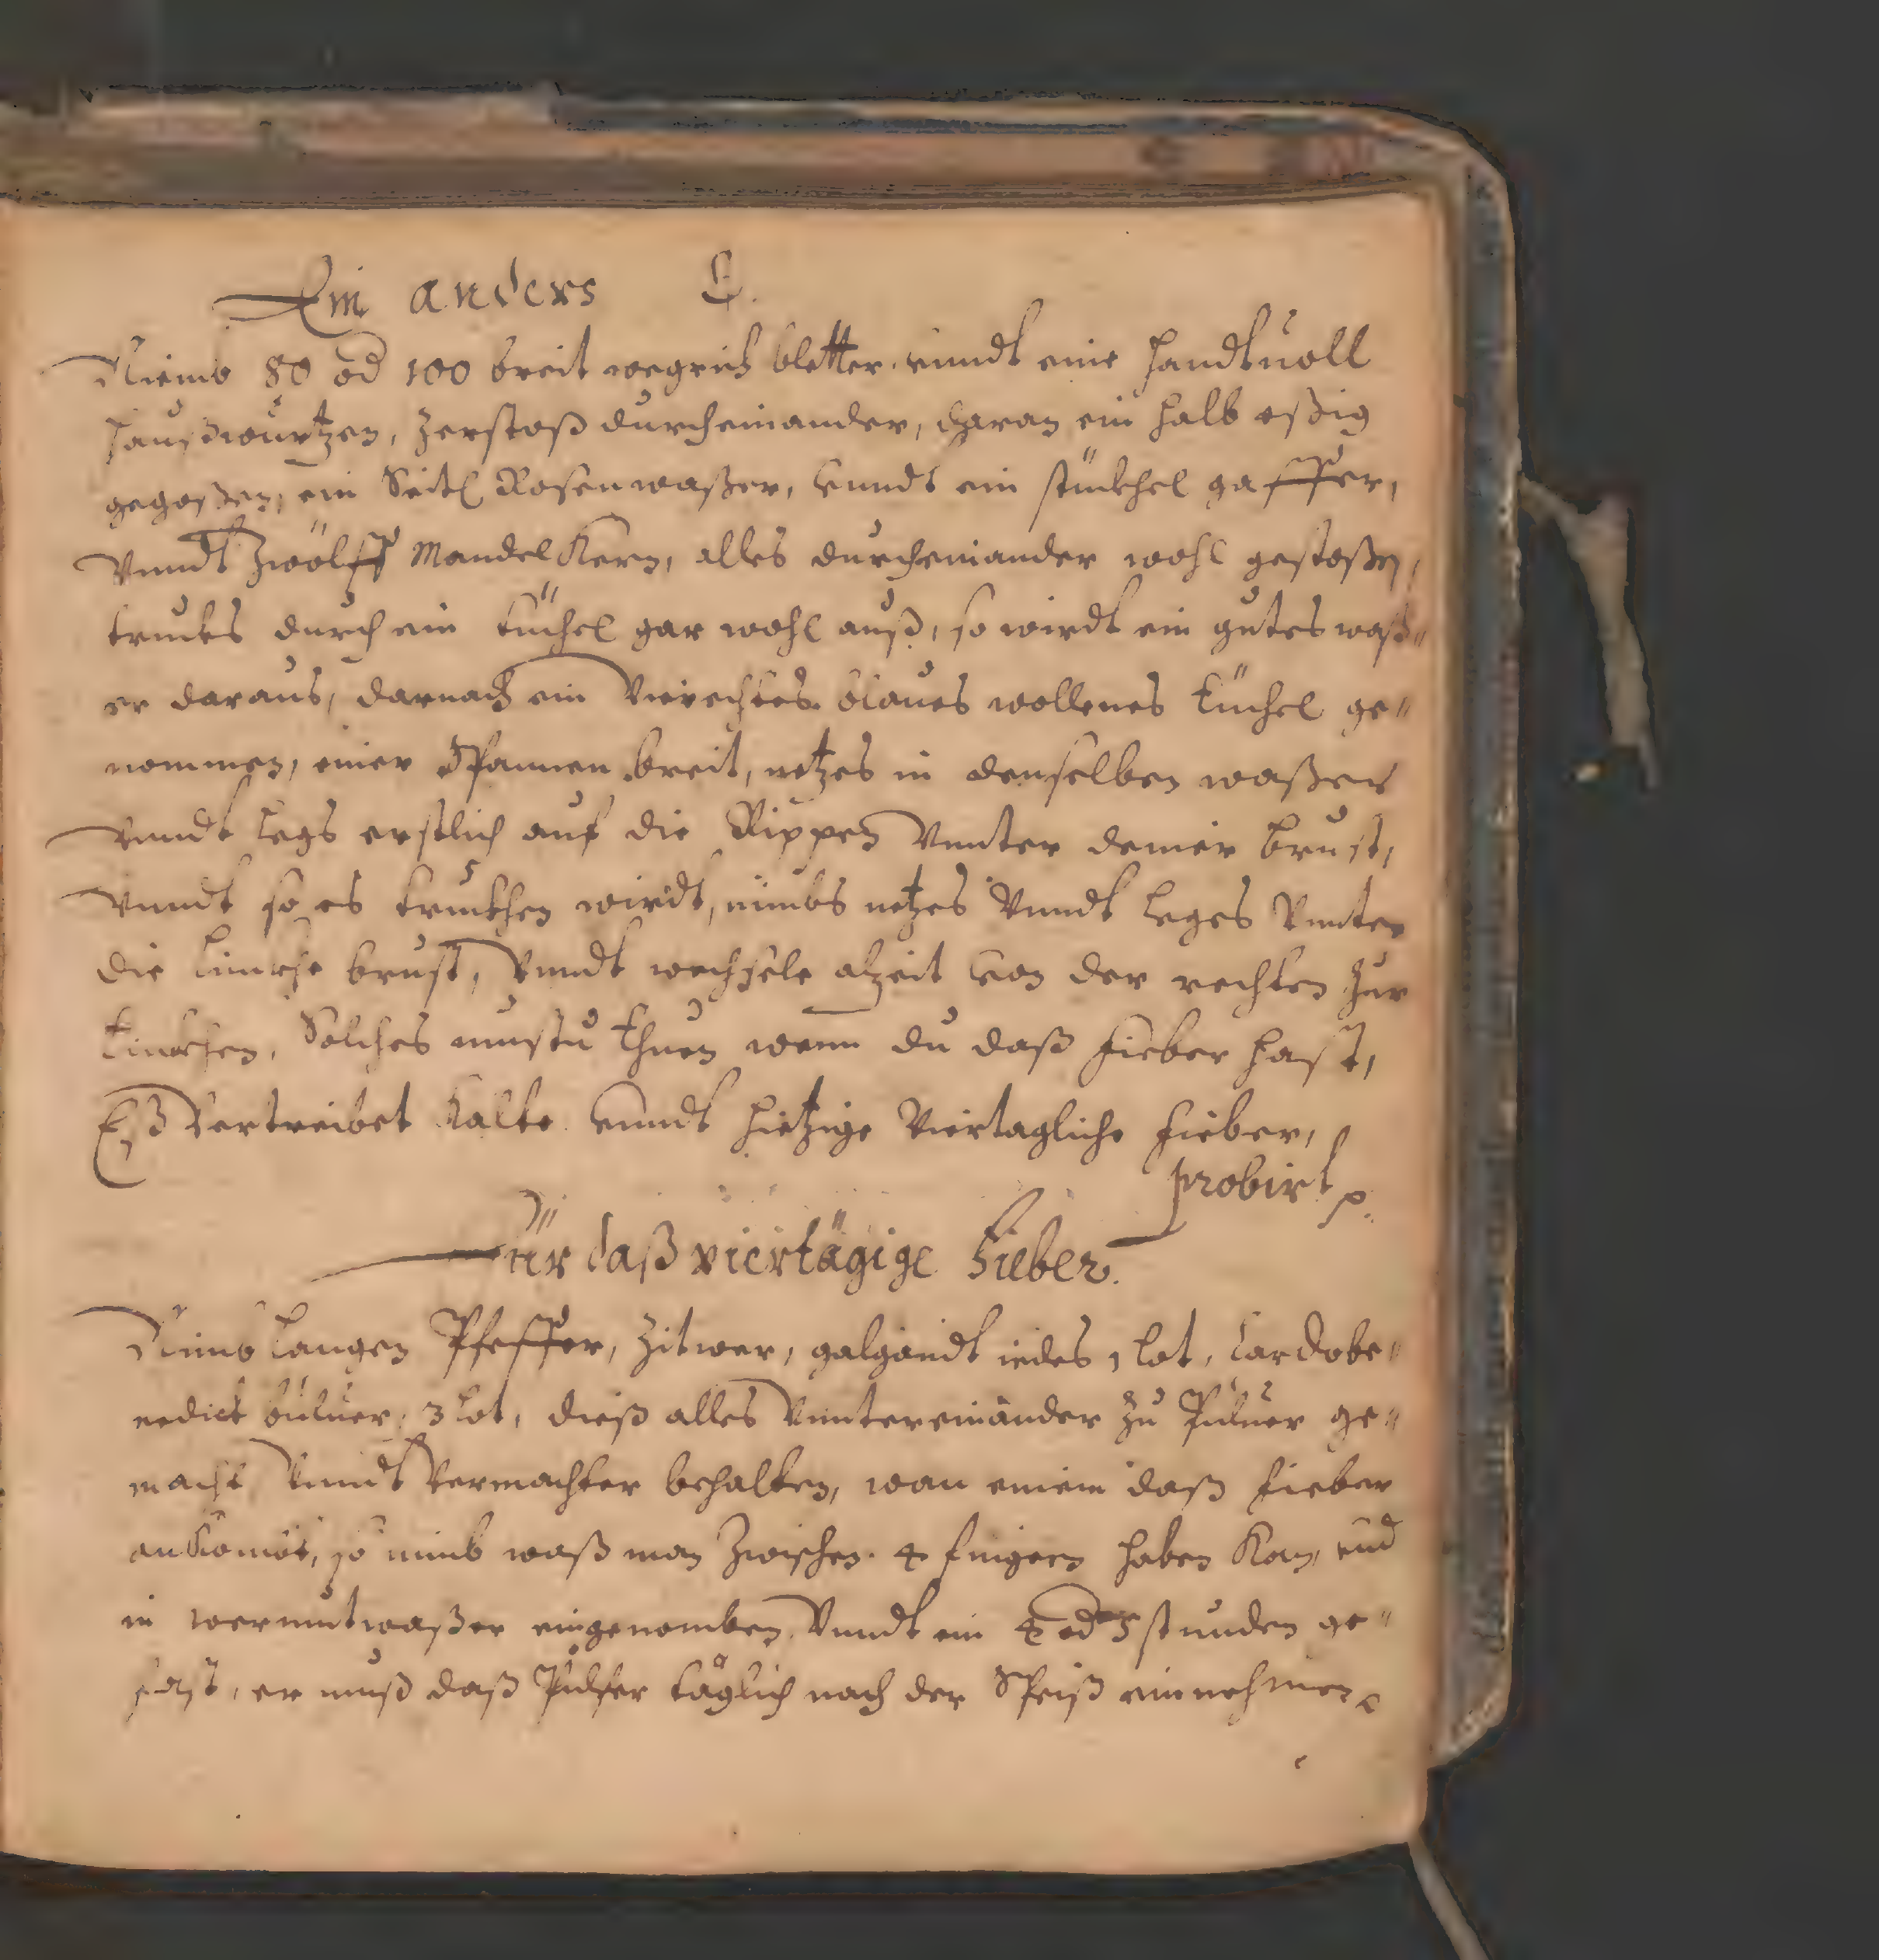 Ein anders
Niemb 80 od 100 breit wegrich bletter. vnndt eine handtuoll
haußwurtzen, zerstoß durcheinander, daran ein halb eßig
gegoßen, ein Seitl Rosenwaßer, vnndt ein stückhel gaffer,
Vnndt Zwölff Mandel Kern, alles durcheinander wohl gestoßen,
trucks durch ein tüchel gar wohl auß, so wirdt ein gutes waß"
er daraus, darnach ein Vierechtes blaues wollenes tüchel ge"
nommen, einer Spannen breit, netzes in denselben waßer
Vnndt legs erstlich auf die Rippen Vnnter deiner brust,
Vnndt so es truckhen wirdt, nimbs netzes Vnndt leges Vnnter
die linckhe brust, Vnndt wechsele alzeit von der rechten zur
linckhen. Solches mustu thuen wenn du daß fieber hast,
Eß Vertreibet kalte vnndt hietzige Viertagliche fieber,
probirt
Für daß viertägige Fieber.
Nimb langen Pfeffer, Zitwer, galgandt iedes 1 lot, Cardobe"
nedict buluer, 3 lot, dieß alles Vnntereinander zu Puluer ge"
macht Vnndt Vermachter behalten, wan einem daß fieber
ankombt, so nimb waß man Zwischen 4 fingern haben Kan, vnd
in wermutwaßer eingenomben Vnndt ein 4 od 5 stunden ge"
fast, er muß daß Pulfer täglich nach der Speiß einnehmen